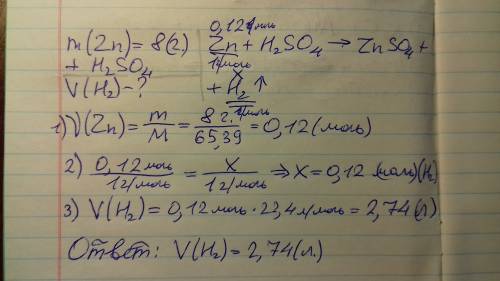 m(Zn)= 8(г.)
+ H₂SO₄
V(H₂)-?
0,12 моль
Zn + H₂SO₄ → ZnSO₄ +
1 моль
x
+ H₂ ↑
1 моль
1) ν(Zn) = m/M = 8 г./65,39 = 0,12 (моль)
2) 0,12 моль/1 г/моль = x/1 г/моль ⇒ x = 0,12 (моль)(H₂)
3) V(H₂) = 0,12 моль · 22,4 л/моль = 2,74 (л)
Ответ: V(H₂) = 2,74 (л.)